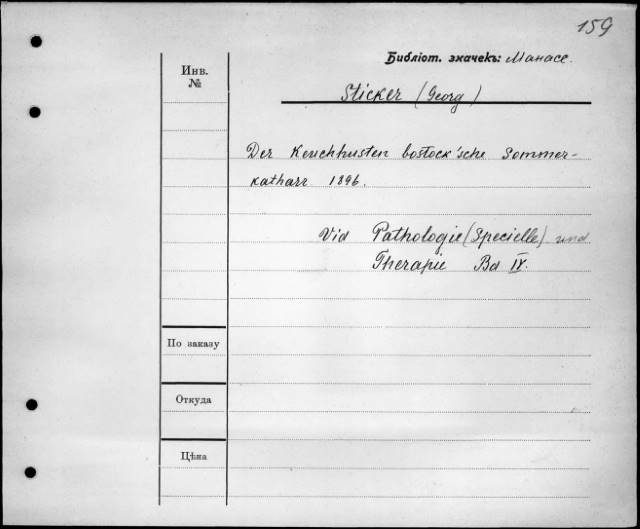 159
Библіот. значекъ: Манасе.
Инв.
№
Sticker (Georg)
Der Keuchhusten bostock'sche Sommer-
katharr 1896.
Vid Pathologie (Specielle) und
Therapie Bd IV.
По заказу
Откуда
Цѣна